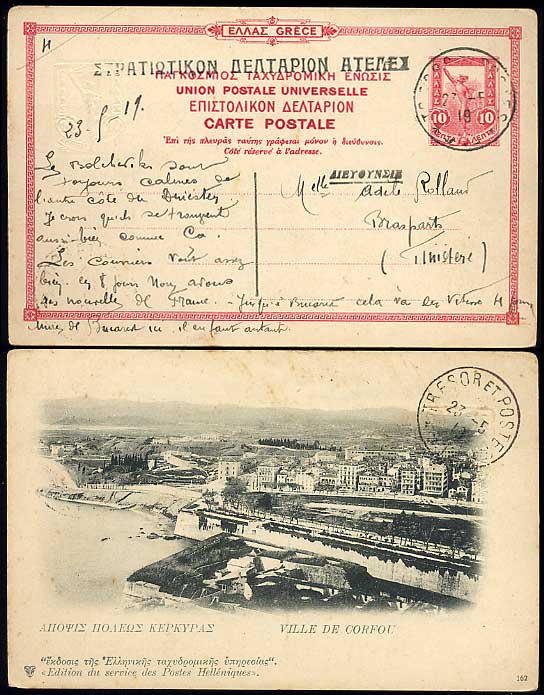 ΕΛΛΑΣ GRÈCE
ΣΤΡΑΤΙΩΤΙΚΟΝ ΔΕΛΤΑΡΙΟΝ ΑΤΕΛΕΣ
ΠΑΓΚΟΣΜΙΟΣ ΤΑΧΥΔΡΟΜΙΚΗ ΕΝΩΣΙΣ
UNION POSTALE UNIVERSELLE
ΕΠΙΣΤΟΛΙΚΟΝ ΔΕΛΤΑΡΙΟΝ
CARTE POSTALE
Ἐπὶ τῆς πλευρᾶς ταύτης γράφεται μόνον ἡ διεύθυνσις.
Côté réservé à l'adresse.
ΕΛΛΑΣ
10 10
ΛΕΠΤΑ ΛΕΠΤΑ
23-5
19
23-5 19.
ΔΙΕΥΘΥΝΣΙΣ
Melle Adèle Rolland
Brasparts
(Finistère)
Les Bolcheviks sont
toujours calmes de
l'autre côté du Dniester
Je crois qu'ils se trouvent
aussi bien comme ça.
Les Courriers vont assez
bien. les 8 jours Nous avons
des nouvelles de France. - Jusqu'à Bucarest cela va des vitesse
de Bucarest ici il en faut autant.
TRESOR ET POSTES
23-5
19
ΑΠΟΨΙΣ ΠΟΛΕΩΣ ΚΕΡΚΥΡΑΣ VILLE DE CORFOU
"ἔκδοσις τῆς Ἑλληνικῆς ταχυδρομικῆς ὑπηρεσίας".
«Edition du service des Postes Helléniques».
162